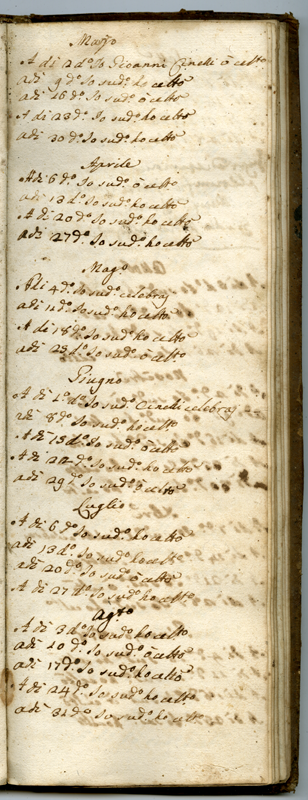 Marzo
A di 2 d.o Io Gioanni Cinelli ò celto
adi 9 d.o Io sud.o ho celto
adi 16 d.o Io sud.o ò celto
A di 23 d.o Io sud.o ho celto
adi 30 d.o Io sud.o ho celto
Aprile
A di 6 d.o Io sud.o ò celto
adi 13 d.o Io sud.o ho celto
A di 20 d.o Io sud.o ho celto
adi 27 d.o Io sud.o ho celto
Mag.o
A di 4 d.o Io sud.o celebraj
adi 11 d.o Io sud.o ho celto
A di 18 d.o Io sud.o ho celto
adi 25 d.o Io sud.o ò celto
Giugno
A di 1 d.o Io sud.o Cinelli celebraj
adi 8 d.o Io sud.o ho celto
A di 15 d.o Io sud.o ò celto
A di 22 d.o Io sud.o ho celto
adi 29 d.o Io sud.o ò celto
Luglio
A di 6 d.o Io sud.o ho celto
adi 13 d.o Io sud.o ho celto
adi 20 d.o Io sud.o ò celto
A di 27 d.o Io sud.o ho celto
Ag.to
A di 3 d.o Io sud.o ho celto
adi 10 d.o Io sud.o ò celto
adi 17 d.o Io sud.o ho celto
A di 24 d.o Io sud.o ho celto
adi 31 d.o Io sud.o ho celto